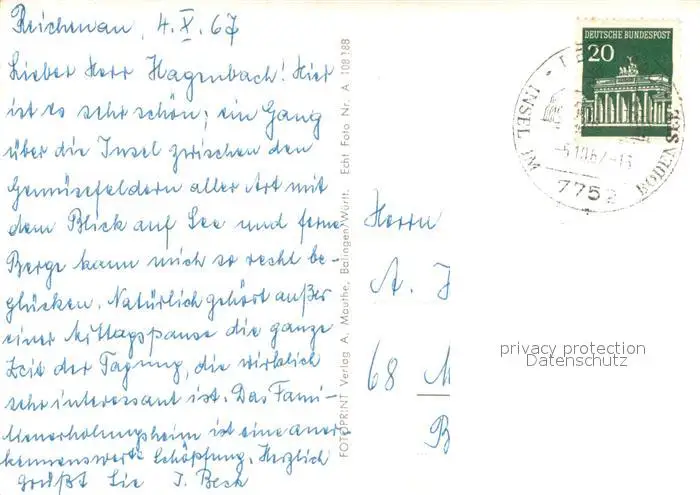 Reichenau, 4.X.67
Lieber Herr Hagenbach! Hier
ist es sehr schön; ein Gang
über die Insel zwischen den
Gemüsefeldern aller Art mit
dem Blick auf See und ferne
Berge kann mich so recht be-
glücken. Natürlich gehört außer
einer Mittagspause die ganze
Zeit der Tagung, die wirklich
sehr interessant ist. Das Fami-
lienerholungsheim ist eine aner-
kennenswerte Schöpfung. Herzlich
grüßt Sie J. Beck
FOTOPRINT Verlag A. Mauthe, Balingen/Württ. Echt Foto Nr. A 108 188
DEUTSCHE BUNDESPOST
20
INSEL IM BODENSEE
-5.10.67-13
7752
Herrn
A.
68 M
B
privacy protection
Datenschutz